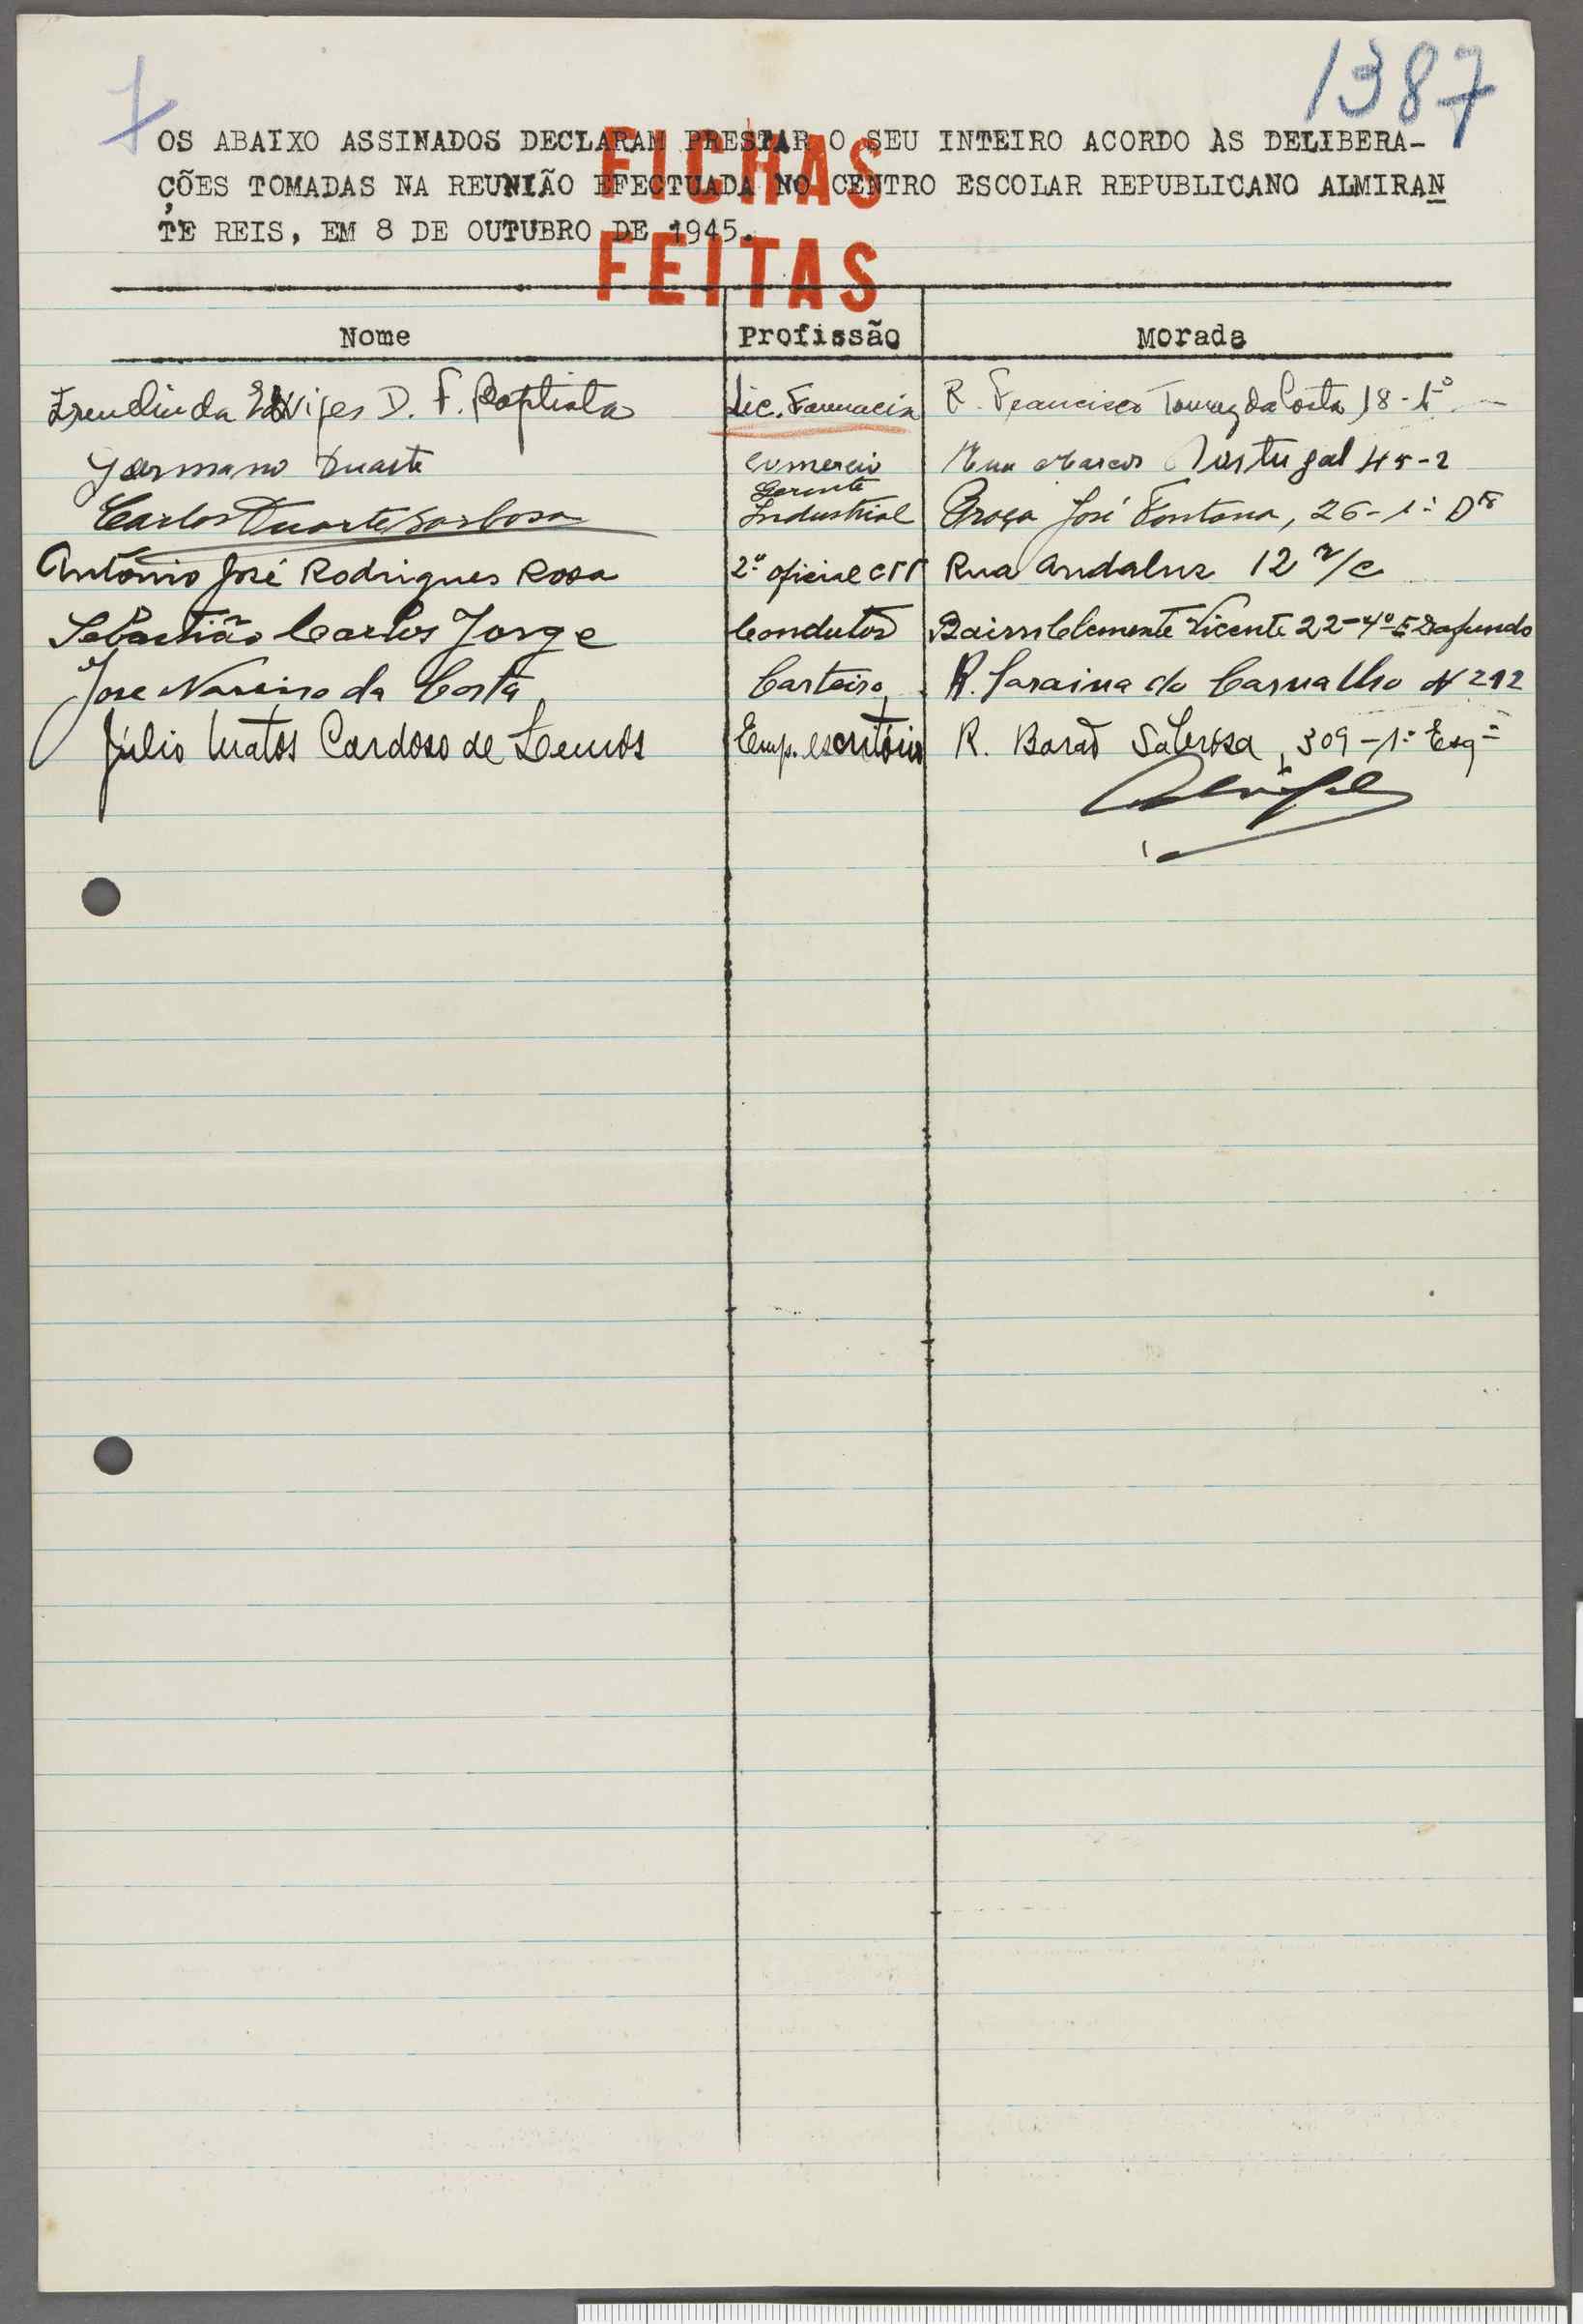 1387
7
OS ABAIXO ASSINADOS DECLARAM PRESTAR O SEU INTEIRO ACORDO ÀS DELIBERA-
ÇÕES TOMADAS NA REUNIÃO EFECTUADA NO CENTRO ESCOLAR REPUBLICANO ALMIRAN
TE REIS, EM 8 DE OUTUBRO DE 1945.
FICHAS
FEITAS
Nome Profissão Morada
Ermelinda Edviges D. F. Baptista Lic. Farmacia R. Francisco Tomaz da Costa, 18-1º
Germano Duarte Comercio Rua Marcos Portugal 45-2
Carlos Duarte Barbosa Gerente Industrial Praça José Fontana, 26-1º Dtº
António José Rodrigues Rosa 2º oficial CTT Rua Andaluz 12 r/c
Sebastião Carlos Jorge Condutor Bairro Clemente Vicente 22-4º E Dafundo
José Nareiso da Costa Carteiro R. Saraiva do Carvalho N 212
Júlio Matos Cardoso de Lemos Emp. escritório R. Barão Sabrosa, 309-1º Esqº